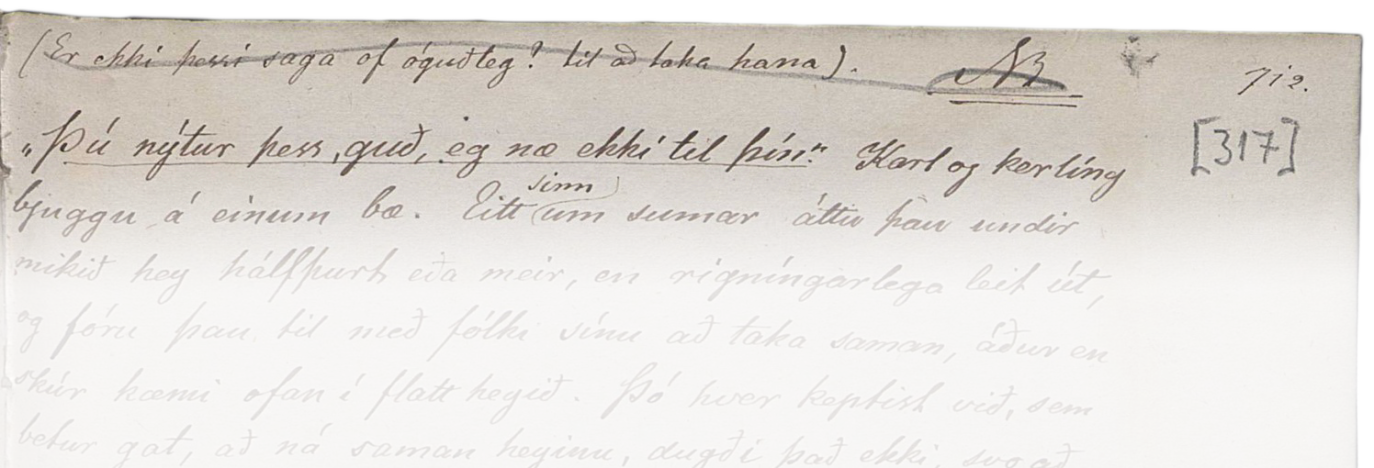 (Er ekki þessi saga of óguðleg? til að taka hana). NB 712.
[317]
„Þú nýtur þess, guð, eg næ ekki til þín.“ Karl og kerlíng
bjuggu á einum bæ. Eitt sinn um sumar áttu þau undir
mikið hey hálfþurt eða meir, en rigníngarlega leit út,
og fóru þau til með fólki sínu að taka saman, áður en
skúr kæmi ofan í flatt heyið. Þó hver keptist við, sem
betur gat, að ná saman heyinu, dugði það ekki, svo að